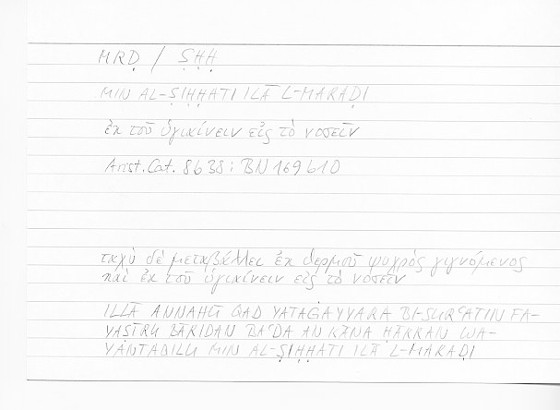 MRḌ / ṢḤḤ
MIN AL-ṢIḤḤATI ILĀ L-MARAḌI
ἐκ τοῦ ὑγιαίνειν εἰς τὸ νοσεῖν
Arist. Cat. 8b38 : BN 169b10
ταχὺ δὲ μεταβάλλει ἐκ θερμοῦ ψυχρὸς γιγνόμενος
καὶ ἐκ τοῦ ὑγιαίνειν εἰς τὸ νοσεῖν
ILLĀ ANNAHŪ QAD YATAĠAYYARA BI-SURʿATIN FA-
YAṢĪRU BĀRIDAN BAʿDA AN KĀNA ḤĀRRAN WA-
YANTAQILU MIN AL-ṢIḤḤATI ILĀ L-MARAḌI